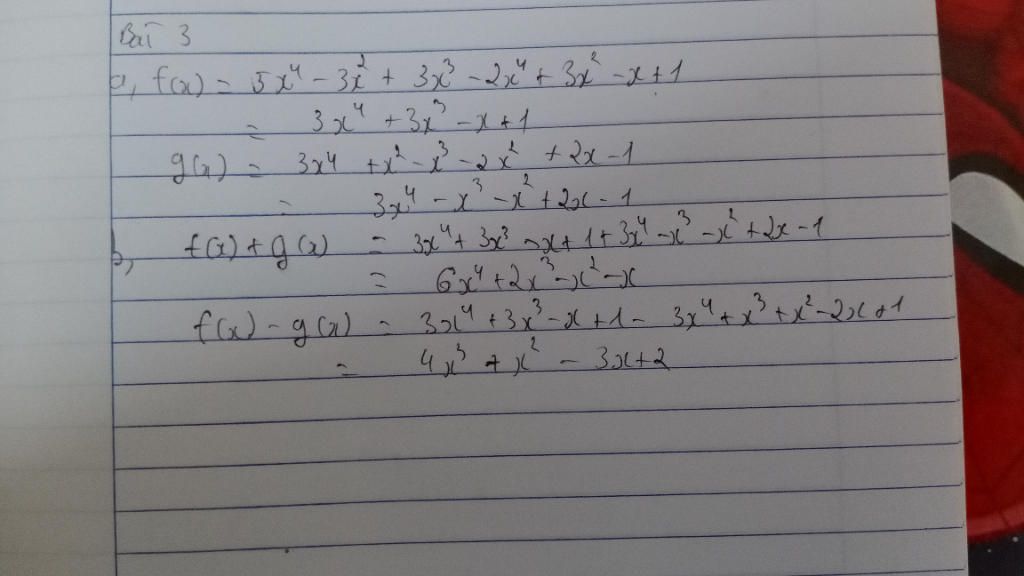 Bài 3
a, f(x) = 5x⁴ - 3x² + 3x³ - 2x⁴ + 3x² - x + 1
= 3x⁴ + 3x³ - x + 1
g(x) = 3x⁴ + x² - x³ - 2x² + 2x - 1
= 3x⁴ - x³ - x² + 2x - 1
b, f(x) + g(x) = 3x⁴ + 3x³ - x + 1 + 3x⁴ - x³ - x² + 2x - 1
= 6x⁴ + 2x³ - x² - x
f(x) - g(x) = 3x⁴ + 3x³ - x + 1 - 3x⁴ + x³ + x² - 2x + 1
= 4x³ + x² - 3x + 2